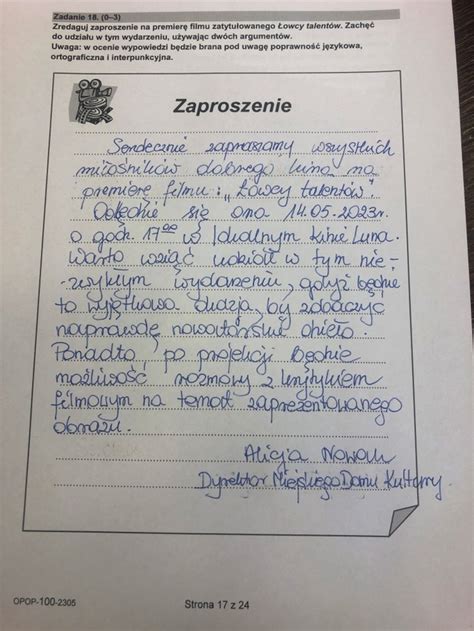 Zadanie 18. (0–3)
Zredaguj zaproszenie na premierę filmu zatytułowanego Łowcy talentów. Zachęć
do udziału w tym wydarzeniu, używając dwóch argumentów.
Uwaga: w ocenie wypowiedzi będzie brana pod uwagę poprawność językowa,
ortograficzna i interpunkcyjna.
Zaproszenie
Serdecznie zapraszamy wszystkich
miłośników dobrego kina na
premierę filmu: „Łowcy talentów".
Odbędzie się ona 14.05.2023r.
o godz. 17⁰⁰ w lokalnym kinie Luna.
Warto wziąć udział w tym nie-
zwykłym wydarzeniu, gdyż będzie
to wyjątkowa okazja, by zobaczyć
naprawdę nowatorskie dzieło.
Ponadto, po projekcji będzie
możliwość rozmowy z krytykiem
filmowym na temat zaprezentowanego
obrazu.
Alicja Nowak
Dyrektor Miejskiego Domu Kultury.
OPOP-100-2305
Strona 17 z 24